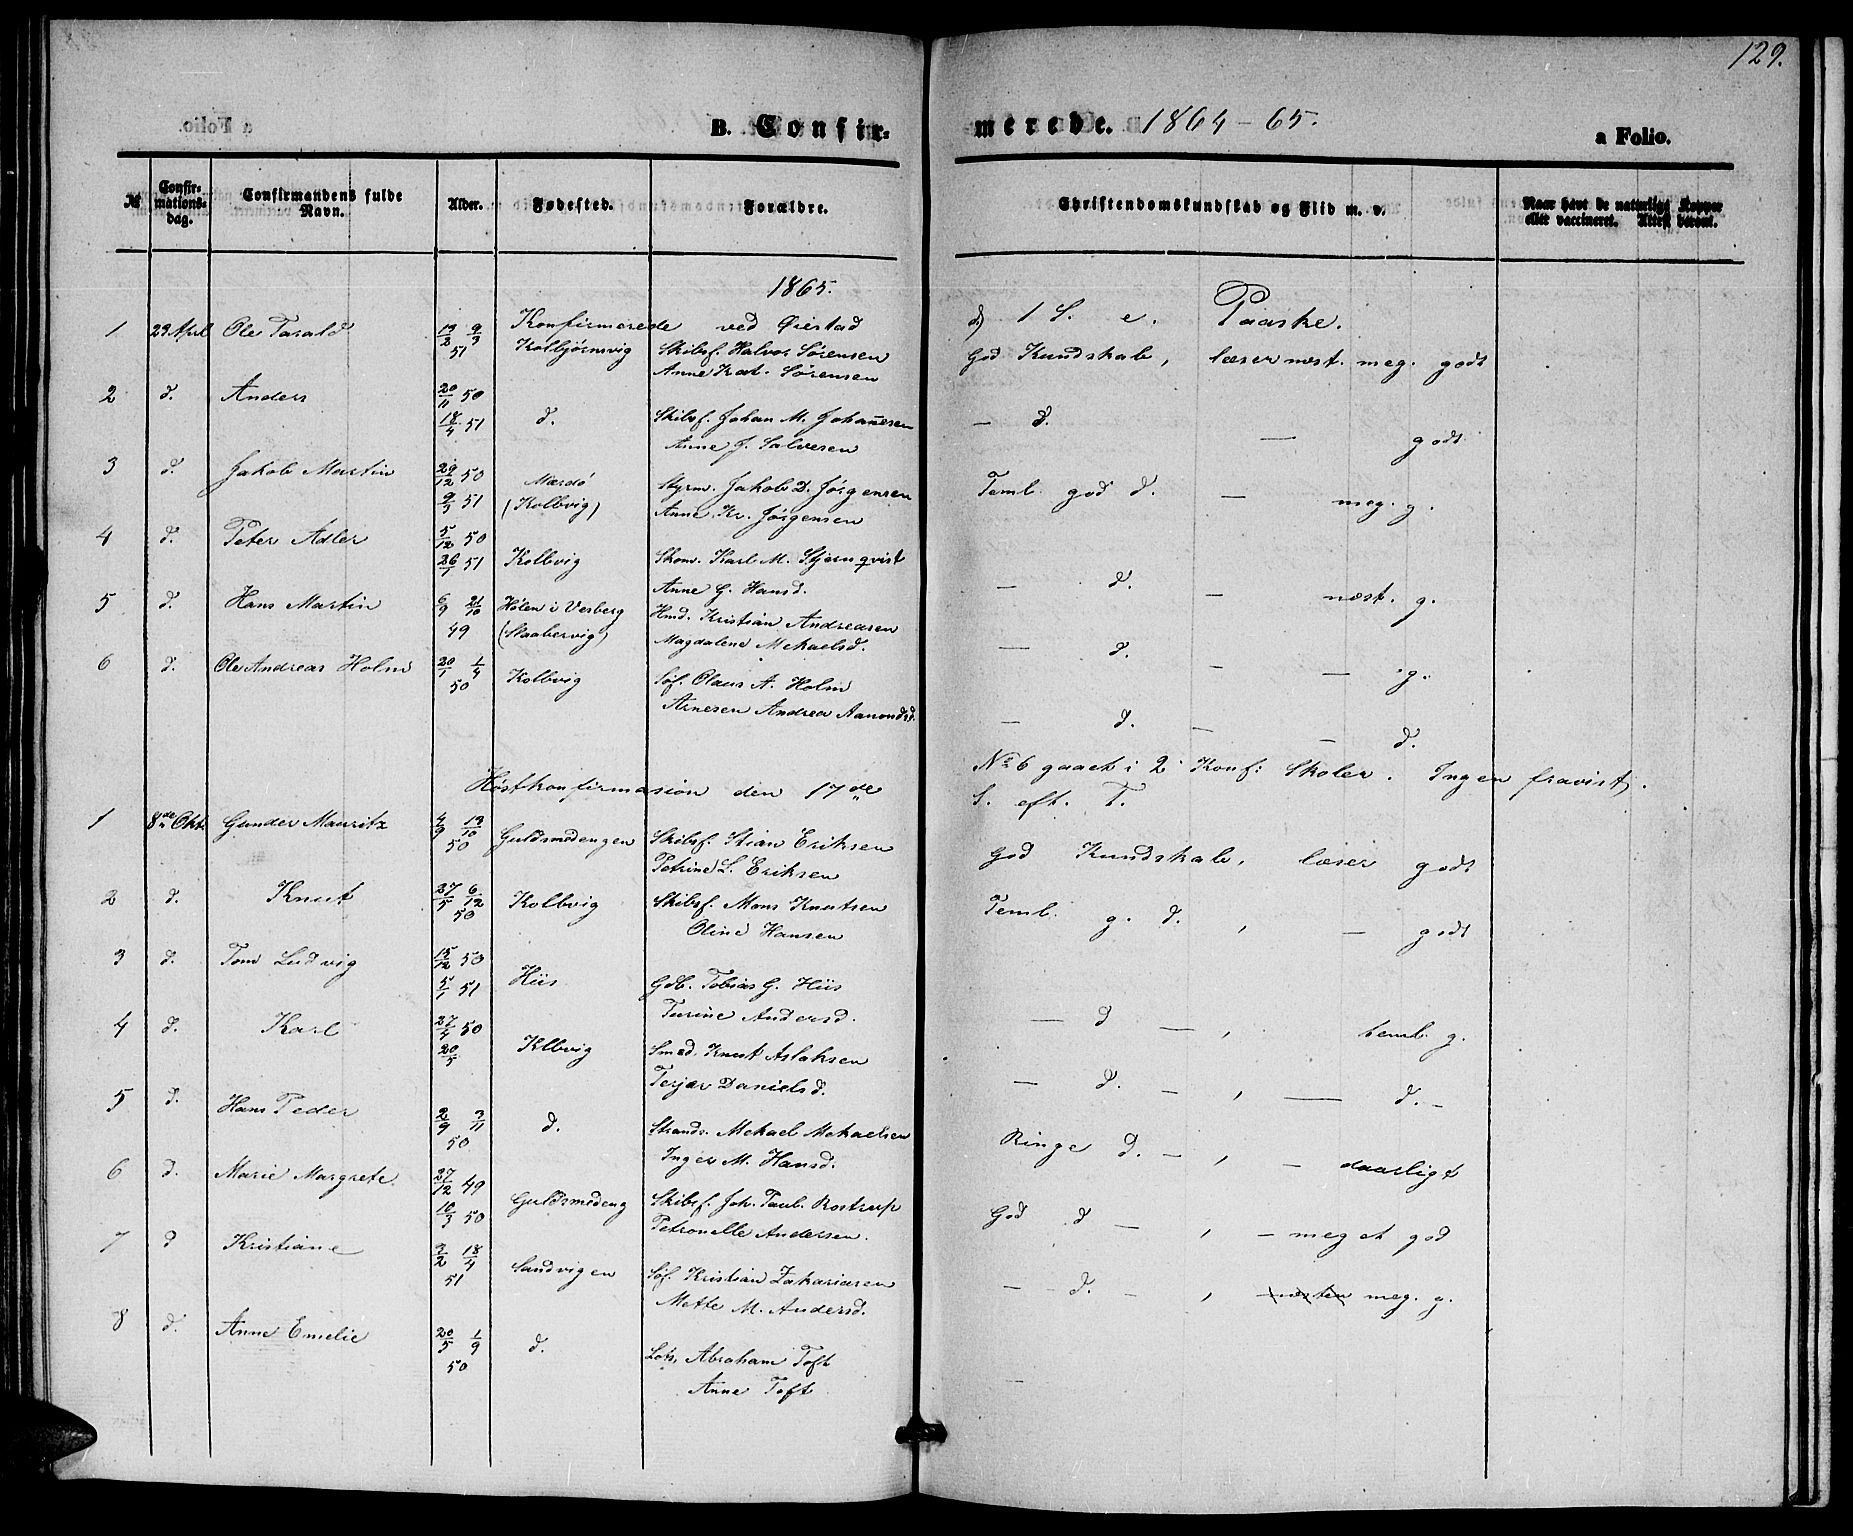 129.
B. Confir-
merede. 1864-65.
a Folio.
№
Confir-
mations-
dag.
Confirmandens fulde
Navn.
Alder.
Fødested.
Forældre.
Christendomskundskab og Flid m. v.
Naar havt de naturlige Kopper
eller vaccineret. Attest derom.
1865.
Konfirmerede ved Øiestad d) 1 S. e. Paaske.
1 23 April Ole Tarald 13/2 9/3 51 Kolbjørnsvig Skibsf. Halvor Sørensen
Anne Kat. Sørensen
God Kundskab, læser næst. meg. godt
2 d. Anders 20/11 50
18/4 51 d. Skibsf. Johan M. Johannesen
Anne J. Salvesen
— d. — godt
3 d. Jakob Martin 29/12 50
9/3 51 Mærdö (Kolbvig) Styrm. Jakob D. Jörgensen
Anne Kr. Jörgensen
Teml. god d. — meg. g.
4 d. Peter Adler 5/12 50
26/1 51 Kolbvig Skom. Karl M. Stjernqvist
Anne G. Hansd.
— d. — næst. g.
5 d. Hans Martin 6/9 21/10 49 Hölen i Verberg
(Skaabervig) Hmd. Kristian Andreasen
Magdalene Mekaelsd.
— d. — — g.
6 d. Ole Andreas Holm 20/1 1/4 50 Kolbvig Søf. Olaus A. Holm
Arnesen Andrea Aanondsd.
— d. — — d.
No 6 gaaet i 2 Konf: Skoler. Ingen fravist.
Høstkonfirmasion den 17de S. eft. T.
1 8de Okt. Gunder Mauritz 4/9 13/10 50 Guldsmedengen Skibsf. Stian Eriksen
Petrine L. Eriksen
God Kundskab, læser godt
2 d. Knut 27/5 6/12 50 Kolbvig Skibsf. Mons Knutsen
Oline Hansen
Teml. g. d. , — godt
3 d. Tom Ludvig 15/12 50
5/1 51 Hiis Gdb. Tobias G. Hiis
Turine Andersd.
— d — , teml. g.
4 d. Karl 27/4 50
20/5 Klbvig Smed. Knut Aslaksen
Terjer Danielsd.
— d. — , — d. —
5 d. Hans Peder 2/9 3/11 50 d. Strands. Mekael Mekaelsen
Inger M. Hansd.
Ringe d. — , — daarligt
6 d. Marie Margrete 27/12 49
10/3 50 Guldsmedeng Skibsf. Joh. Paul. Rostrup
Petronelle Andersen.
God d — , — meget god
7 d Kristiane 3/2 18/4 51 Sandvigen Søf. Kristian Zakariasen
Mette M. Andersd.
— d. — , næsten meg. g.
8 d. Anne Emelie 20/5 1/9 50 d. Lots, Abraham Toft
Anne Toft